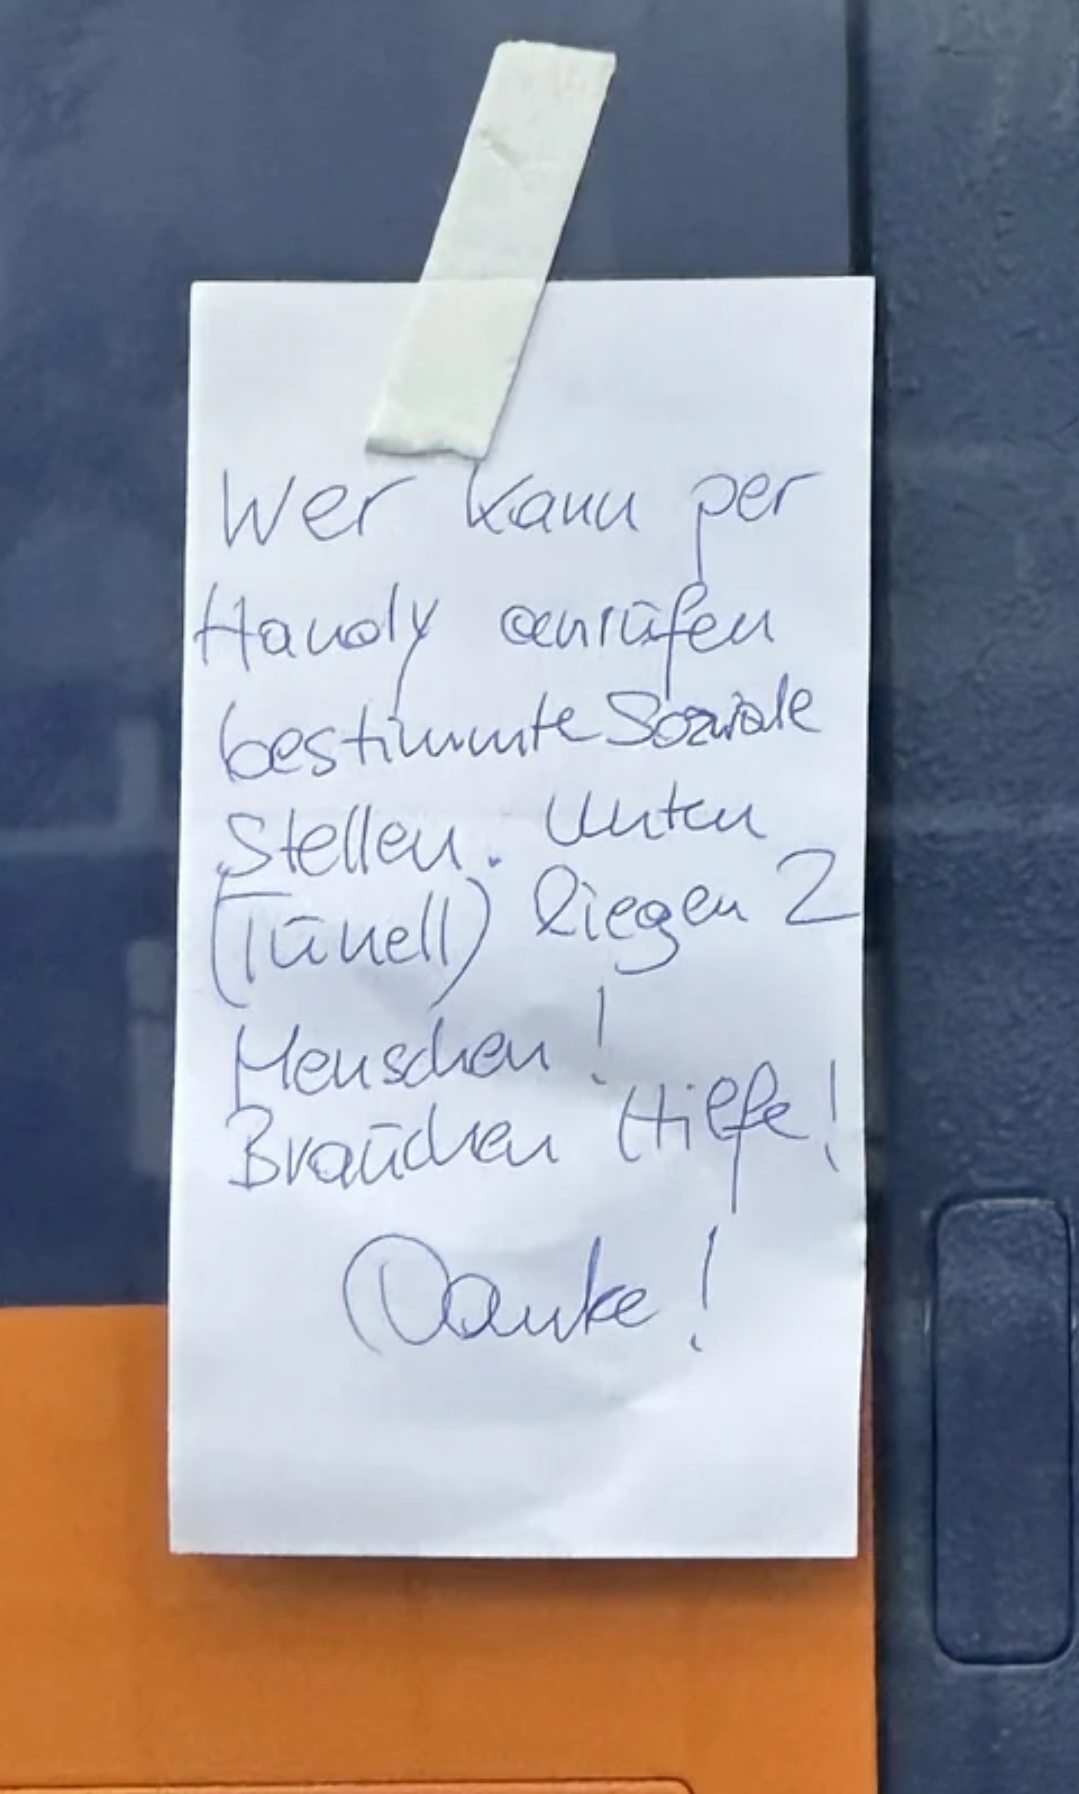 Wer kann per
Handy anrufen
bestimmte Soziale
Stellen. Unten
(Tunell) liegen 2
Menschen!
Brauchen Hilfe!
Danke!